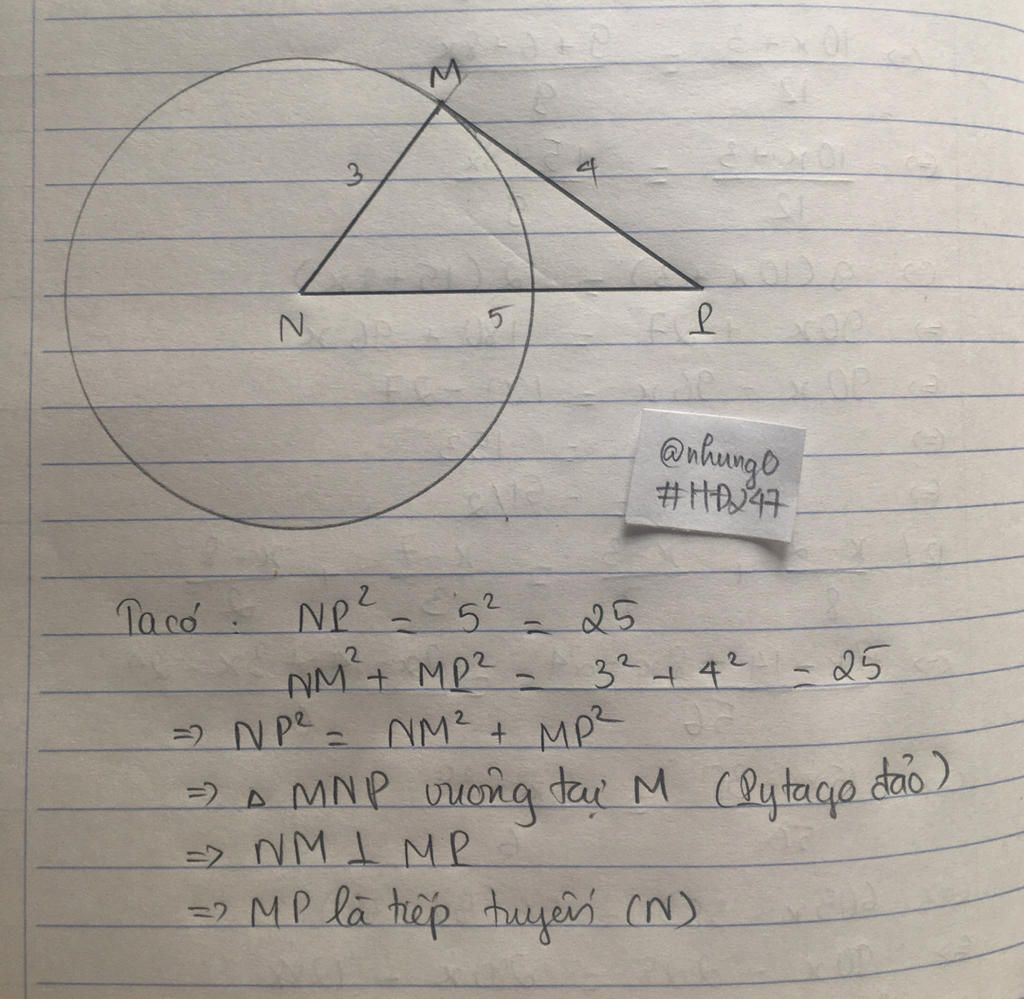 M
3
4
N
5
P
@nhung0
#HD247
Ta có : NP² = 5² = 25
NM² + MP² = 3² + 4² = 25
=> NP² = NM² + MP²
=> △ MNP vuông tại M (Pytago đảo)
=> NM ⊥ MP
=> MP là tiếp tuyến (N)